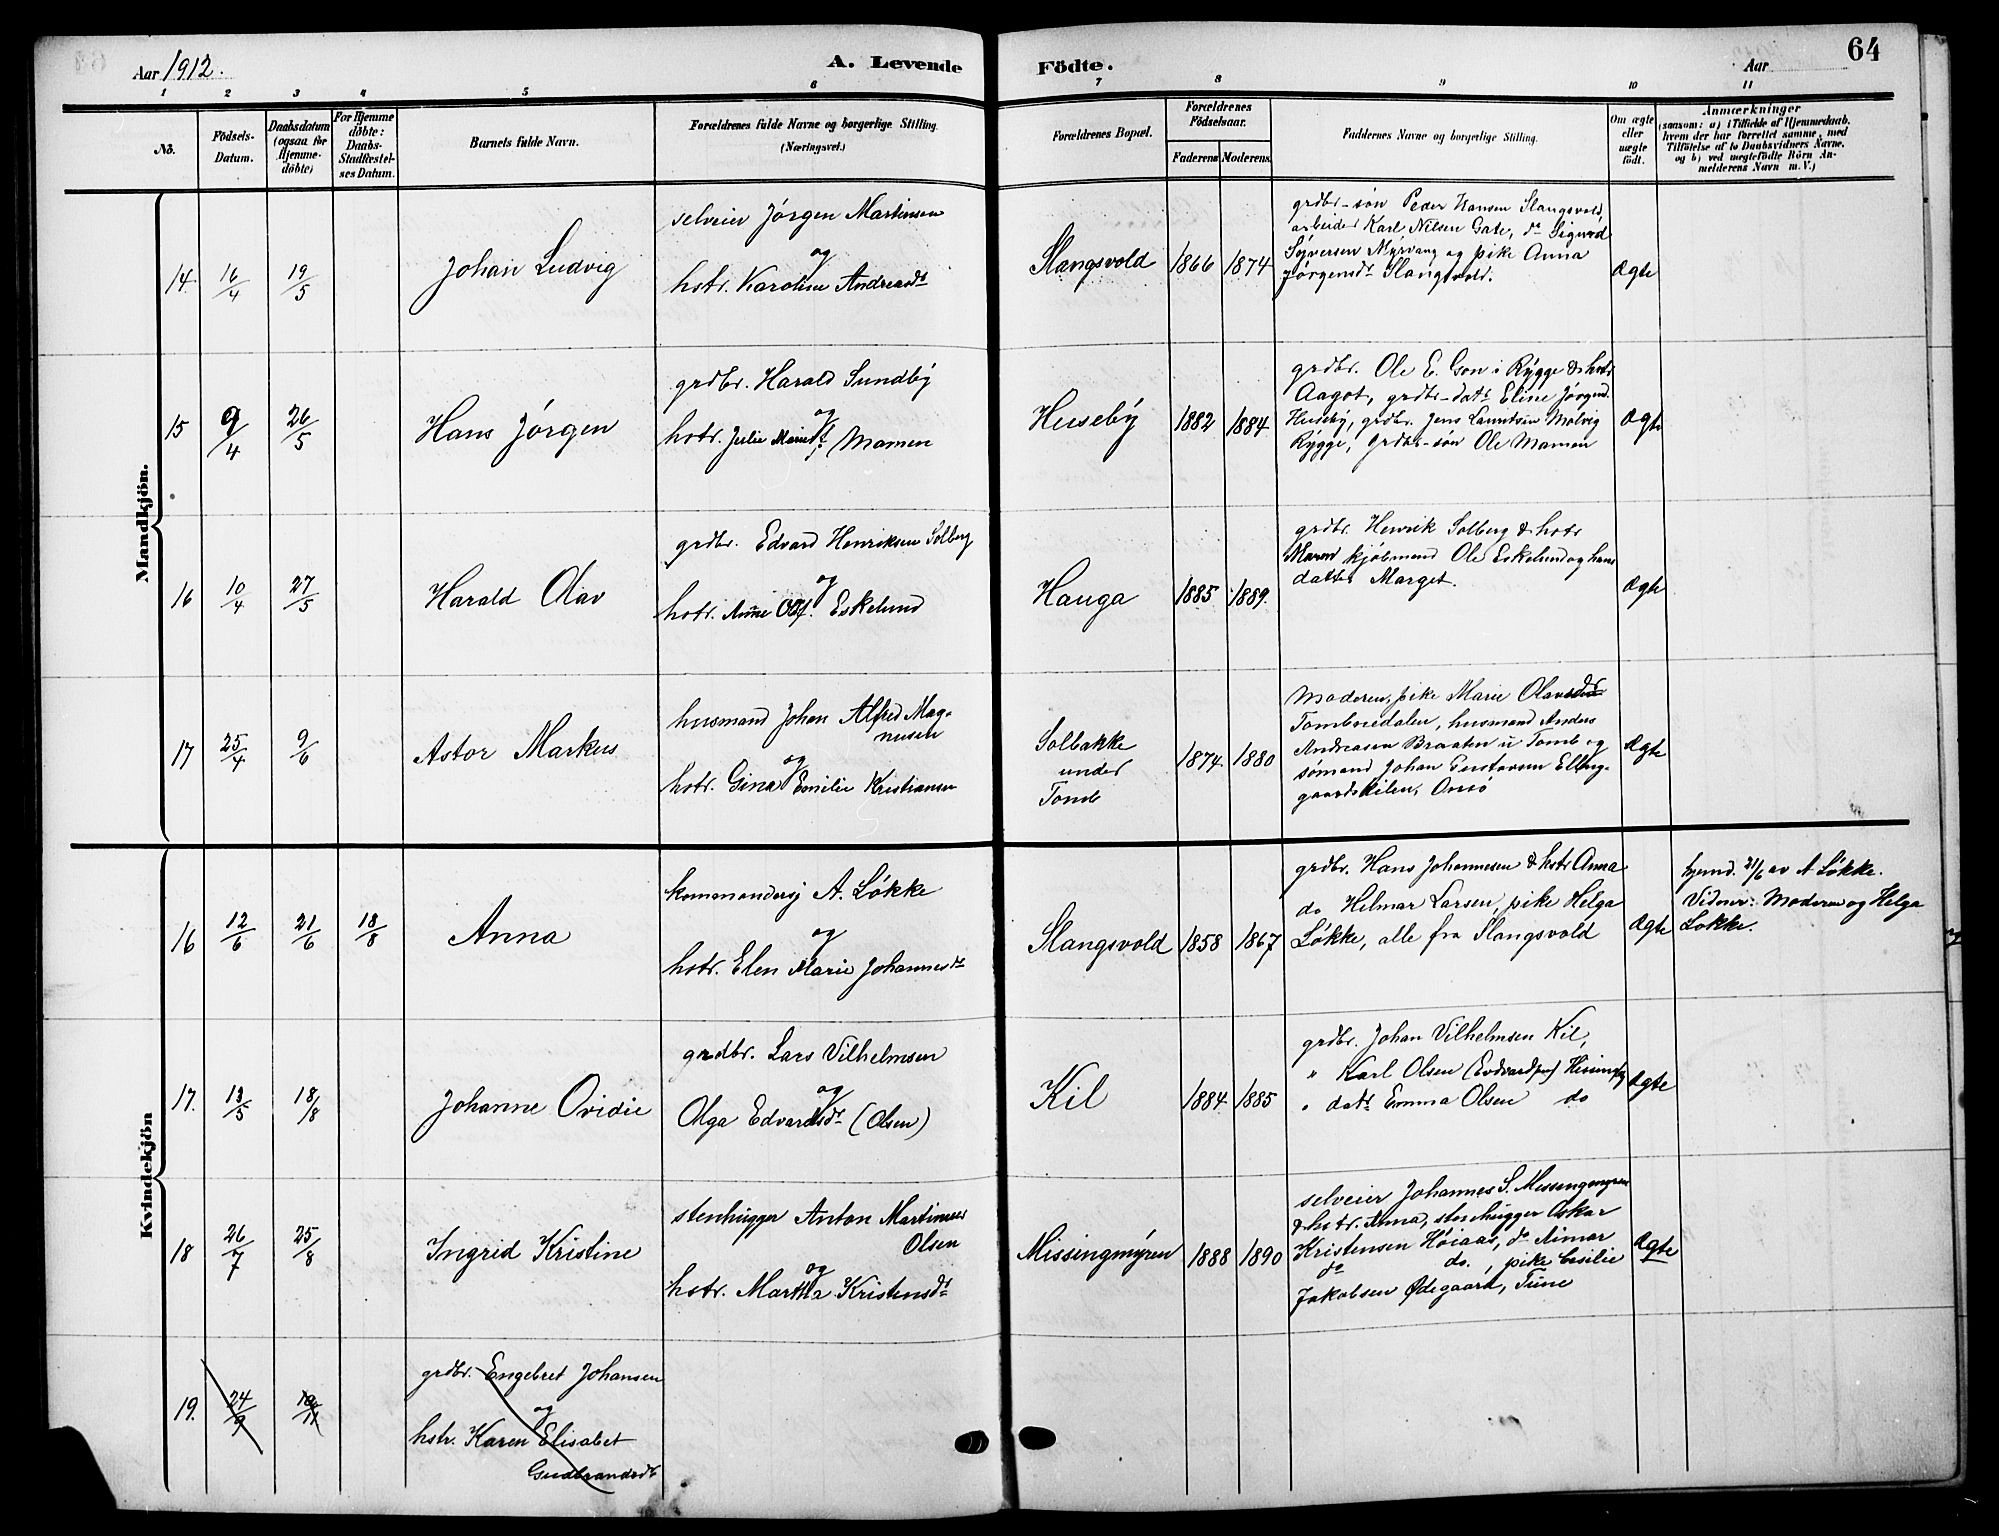 Aar 1912.
A. Levende Födte.
Aar
64
1 2 3 4 5 6 7 8 9 10 11
No.
Födsels-
Datum.
Daabsdatum
(ogsaa for
Hjemme-
döbte)
For Hjemme
döbte:
Daabs-
Stadfæstel-
ses Datum.
Barnets fulde Navn.
Forældrenes fulde Navne og borgerlige Stilling.
(Næringsvei.)
Forældrenes Bopæl.
Forældrenes
Födselsaar.
Faderens Moderens.
Faddernes Navne og borgerlige Stilling.
Om ægte
eller
uægte
födt.
Anmærkninger
(saasom: a) i Tilfælde af Hjemmedaab,
hvem der har forrettet samme, med
Tilföielse af to Daabsvidners Navne.
og b) ved uægtefödte Börn An-
melderens Navn m. V.)
Mandkjön.
14. 16/4 19/5
Johan Ludvig
selveier Jörgen Martinsen
og
hstr. Karoline Andreasdt
Slangsvold 1866 1874
grdbr-sön Peder Hansen Slangsvold,
arbeider Karl Nilsen Gate, do Sigurd
Syversen Myrvang og pike Anna
Jørgensdt Slangsvold.
Ægte
15 9/4 26/5
Hans Jörgen
grdbr. Harald Sundby
og
hstr. Julie Marie f. Mamen
Huseby 1882 1884
grdbr. Ole E. Eson i Rygge & hstr
Aagot, grdbr-datr Eline Jørgend.
Huseby, grdbr. Jens Lauritsen Molvig
Rygge, Grdbr-sön Ole Mamen
Ægte
16 10/4 27/5
Harald Olav
grdbr. Edvard Henriksen Solberg
og
hstr. Anne f. Eskelund
Hauga 1885 1889.
grdbr. Henrik Solberg & hstr
Maren kjöbmand Ole Eskelund og hans
datter Marget.
Ægte
17 25/4 9/6
Astor Markus
husmand Johan Alfred Mag-
nusen
og
hstr. Gina Emilie Kristiansen
Solbakke
under
Tomb
1874 1880
Moderen, pike Marie Olavsdr
Tombnedalen, husmand Anders
Andreasen Braaten u Tomb og
sömand Johan Gustavsen Elling-
gaardskilen, Onsö
Ægte
Kvindekjön
16 12/6 21/6 18/8
Anna
kommandersj A. Løkke
og
hstr. Elen Marie Johannesdr
Slangsvold 1858 1867
grdbr. Hans Johannesen & hstr Anna
do Helmar Larsen, pike Helga
Løkke, alle fra Slangsvold
Ægte
hjemd. 21/6 av A Løkke.
Vidner: Moderen og Helga
Løkke.
17. 13/5 18/8
Johanne Ovidie
grdbr. Lars Vilhelmsen
og
Olga Edvardsdt (Olsen)
Kil 1884 1885
grdbr. Johan Vilhelmsen Kil,
" Karl Olsen
" datr Emma Olsen do
Ægte
18 26/7 25/8
Ingrid Kristine
stenhugger Anton Martinius
Olsen
og
hstr. Martha Kristensdt
Missingmyren 1888 1890
selveier Johannes S. Missingmyren
& hstr. Anna, stenhugger Oskar
Kristensen Höiaas, do Aimar
do do., pike Cesilie
Jakobsen Ødegaard, Tune
Ægte
19. 24/9
grdbr. Engebret Johansen
og
hstr. Karen Elisabet
Gudbrandsdt